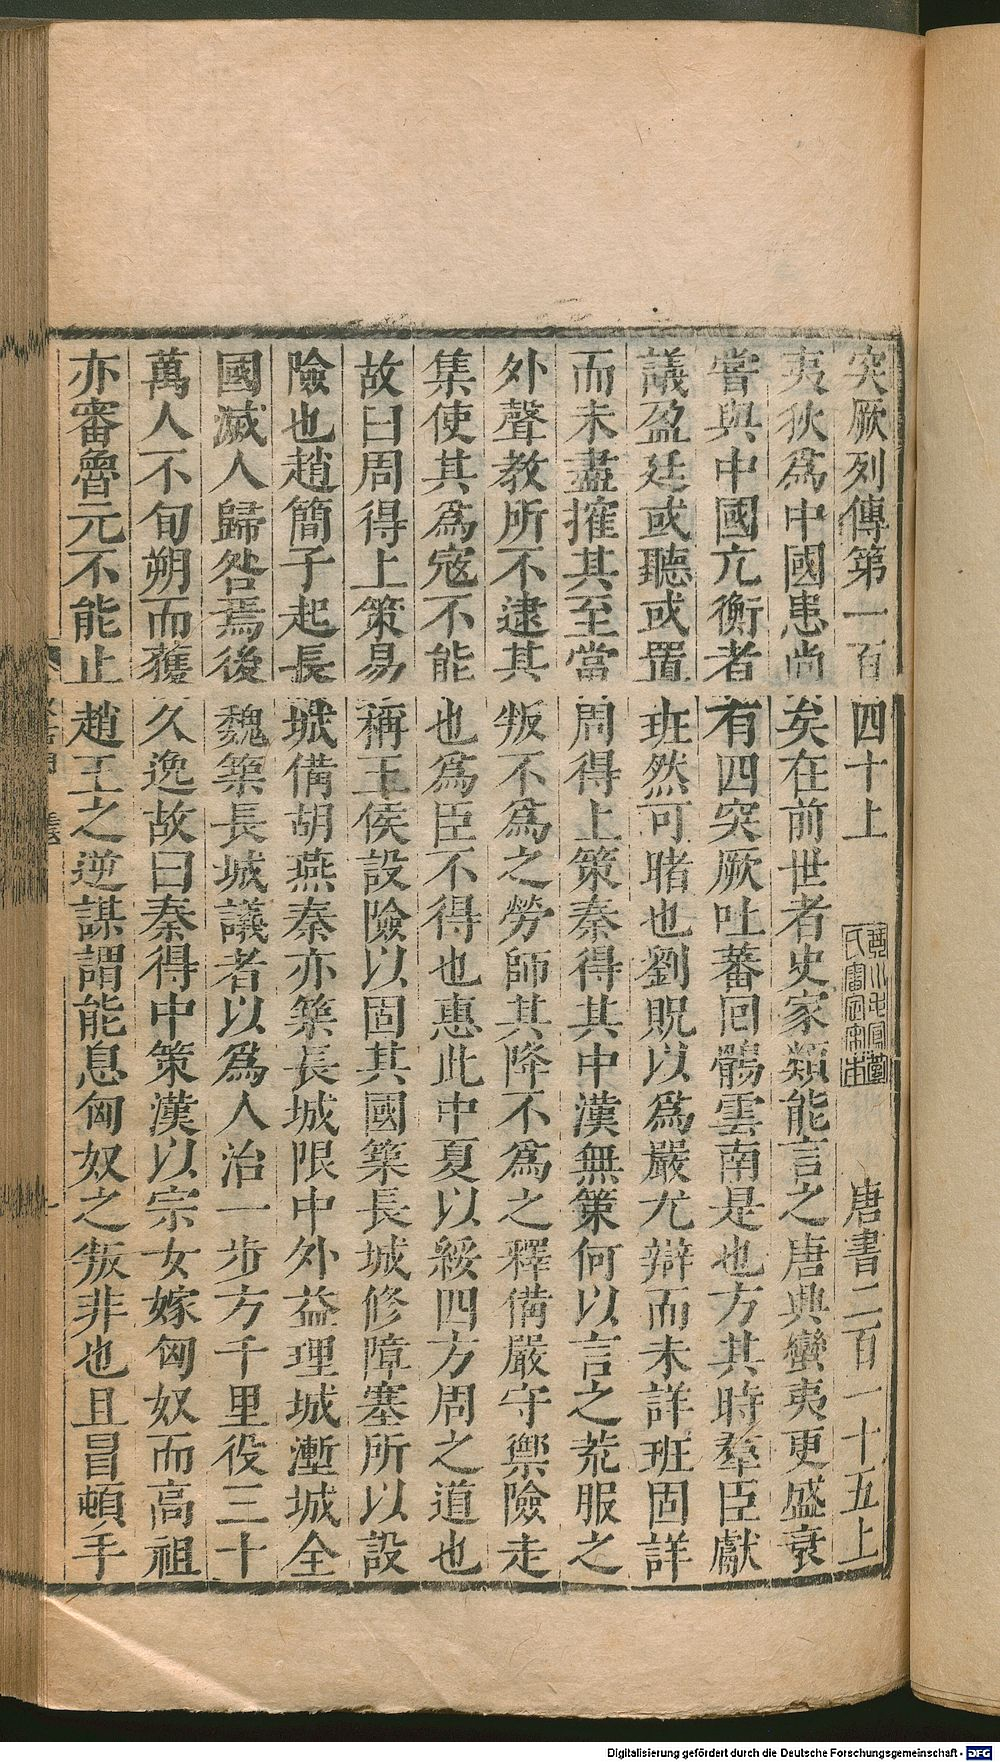 突厥列傳第一百四十上 唐書二百一十五上
夷狄爲中國患尚矣在前世者史家類能言之唐典蠻夷更盛衰
嘗與中國亢衡者有四突厥吐蕃回鶻雲南是也方其時羣臣獻
議盈廷或聽或置班然可睹也劉貺以爲嚴尤辯而未詳班固詳
而未盡搉其至當周得上策秦得其中漢無策何以言之荒服之
外聲教所不逮其叛不爲之勞師其降不爲之釋備嚴守禦險走
集使其爲寇不能也爲臣不得也惠此中夏以綏四方周之道也
故曰周得上策易稱王侯設險以固其國築長城修障塞所以設
險也趙簡子起長城備胡燕秦亦築長城限中外益理城塹城全
國滅人歸咎焉後魏築長城議者以爲人治一步方千里役三十
萬人不旬朔而獲久逸故曰秦得中策漢以宗女嫁匈奴而高祖
亦審魯元不能止趙王之逆謀謂能息匈奴之叛非也且冒頓手
Digitalisierung gefördert durch die Deutsche Forschungsgemeinschaft - DFG